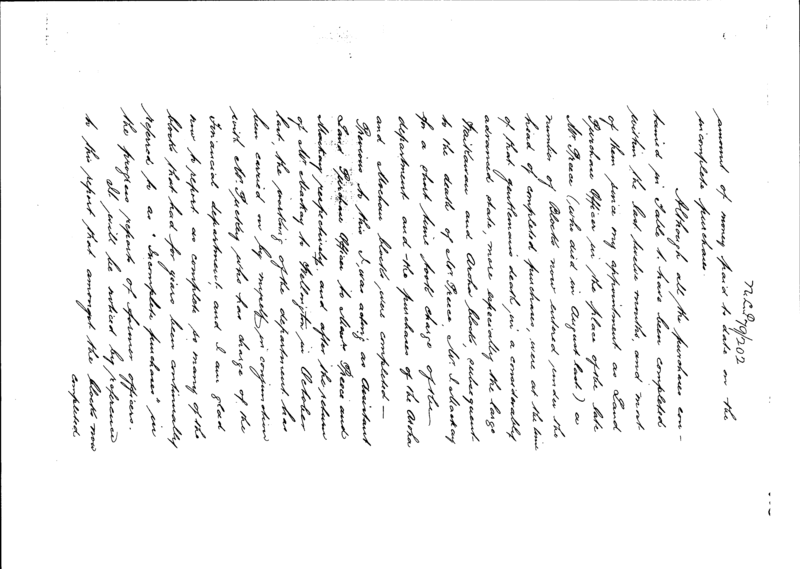 N.L.P 79/202
amount of money paid to date on the
incomplete purchases.
Although all the purchases con-
tained in Table 1. have been completed
within the last twelve months, and most
of them since my appointment as Land
Purchase Officer in the place of the late
Mr Preece (who died in August last) a
number of Blocks now entered under the
head of completed purchases, were at the time
of that gentleman's death in a considerably
advanced state, more especially the large
Waitakaruru and Aroha Blocks subsequent
to the death of Mr Preece. Mr J Mackay
for a short time took charge of the
department and the purchases of the Aroha
and Moehau blocks were completed —
Previous to this I was acting as Assistant
Land Purchase Officer to Messrs Preece and
Mackay respectively, and after the return
of Mr Mackay to Wellington in October
last, the working of the department has
been carried on by myself in conjunction
with Mr who has charge of the
Financial department, and I am glad
now to report as complete so many of the
blocks that had for years been continually
referred to as "Incomplete purchases" in
the progress reports of former officers.
It will be noticed by reference
to this report that amongst the blocks now
completed